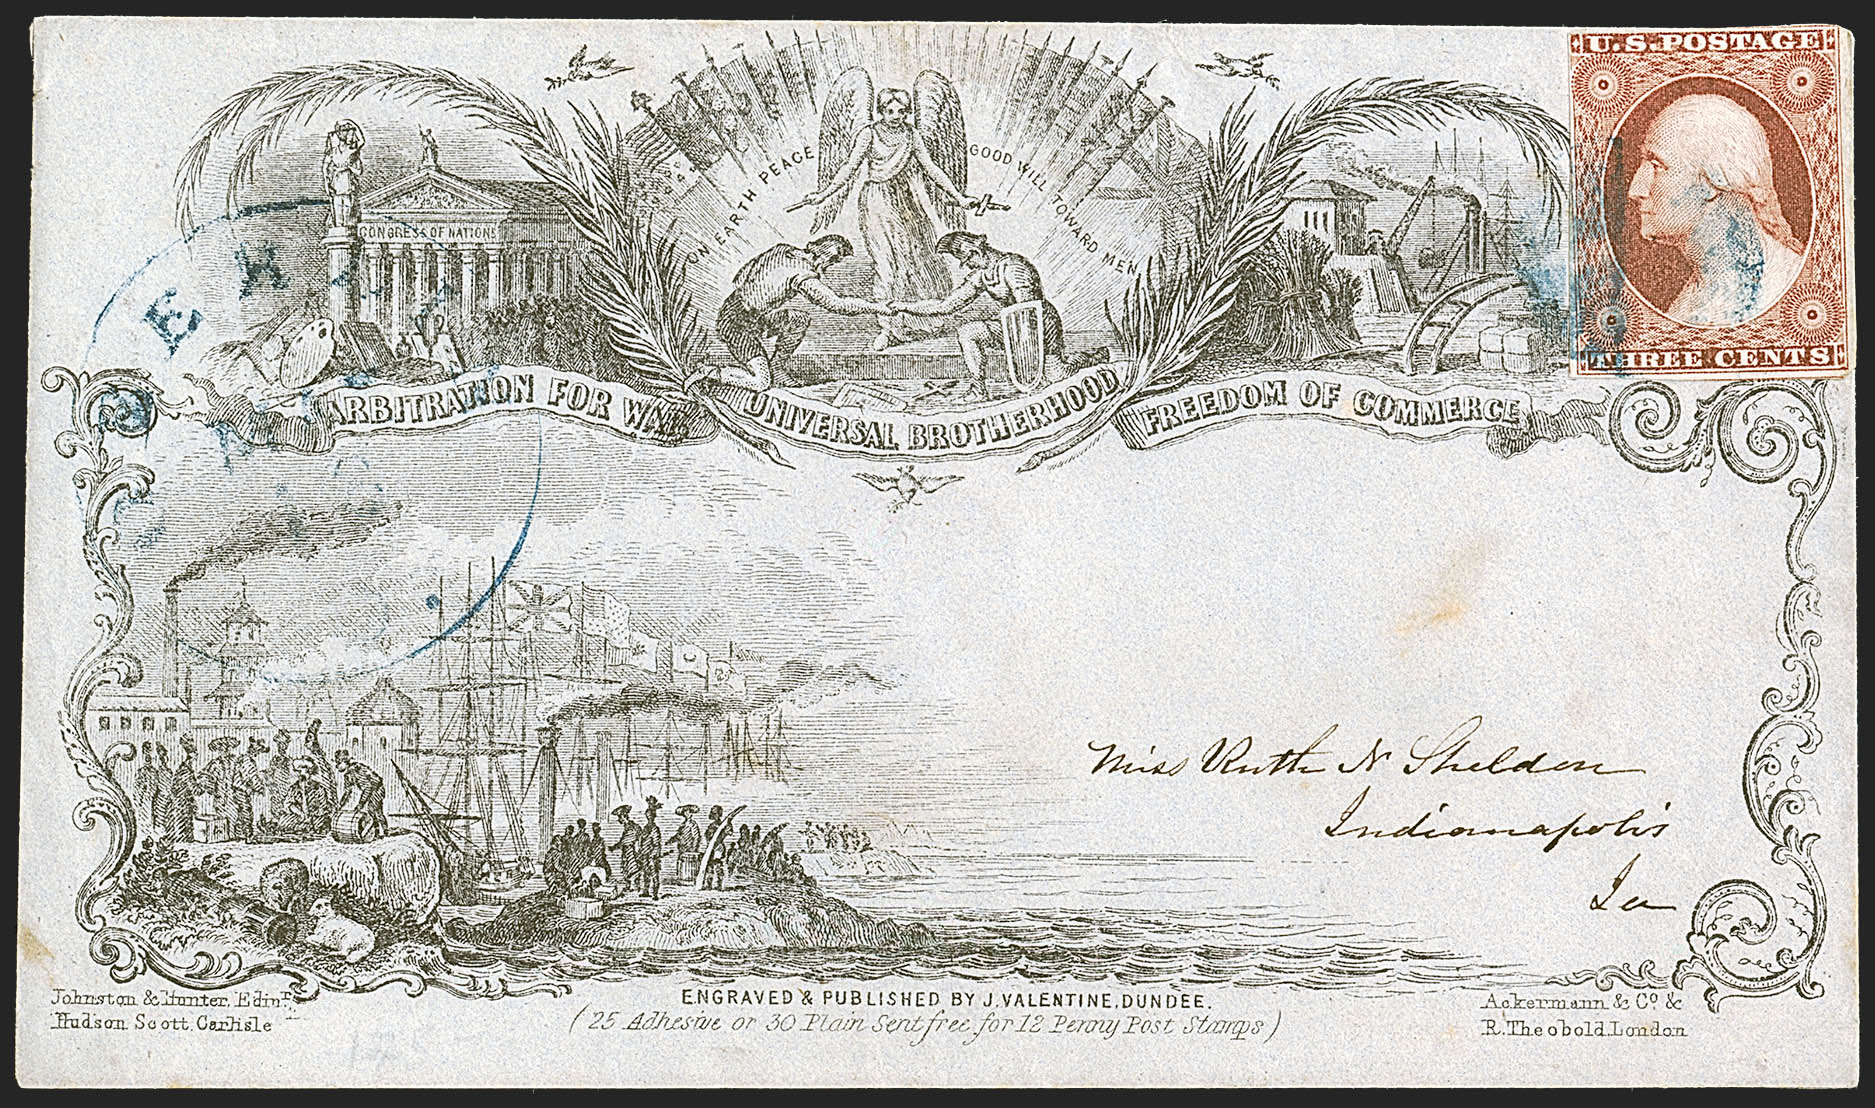 U.S. POSTAGE
THREE CENTS
CONGRESS OF NATIONS
ON EARTH PEACE GOOD WILL TOWARD MEN
ARBITRATION FOR WAR
UNIVERSAL BROTHERHOOD
FREEDOM OF COMMERCE
Miss Ruth N Sheldon
Indianapolis
Ia
Johnston & Hunter, Edinr.
Hudson Scott, Carlisle
ENGRAVED & PUBLISHED BY J. VALENTINE, DUNDEE.
(25 Adhesive or 30 Plain Sent free for 12 Penny Post Stamps)
Ackermann & Co. &
R. Theobold, London